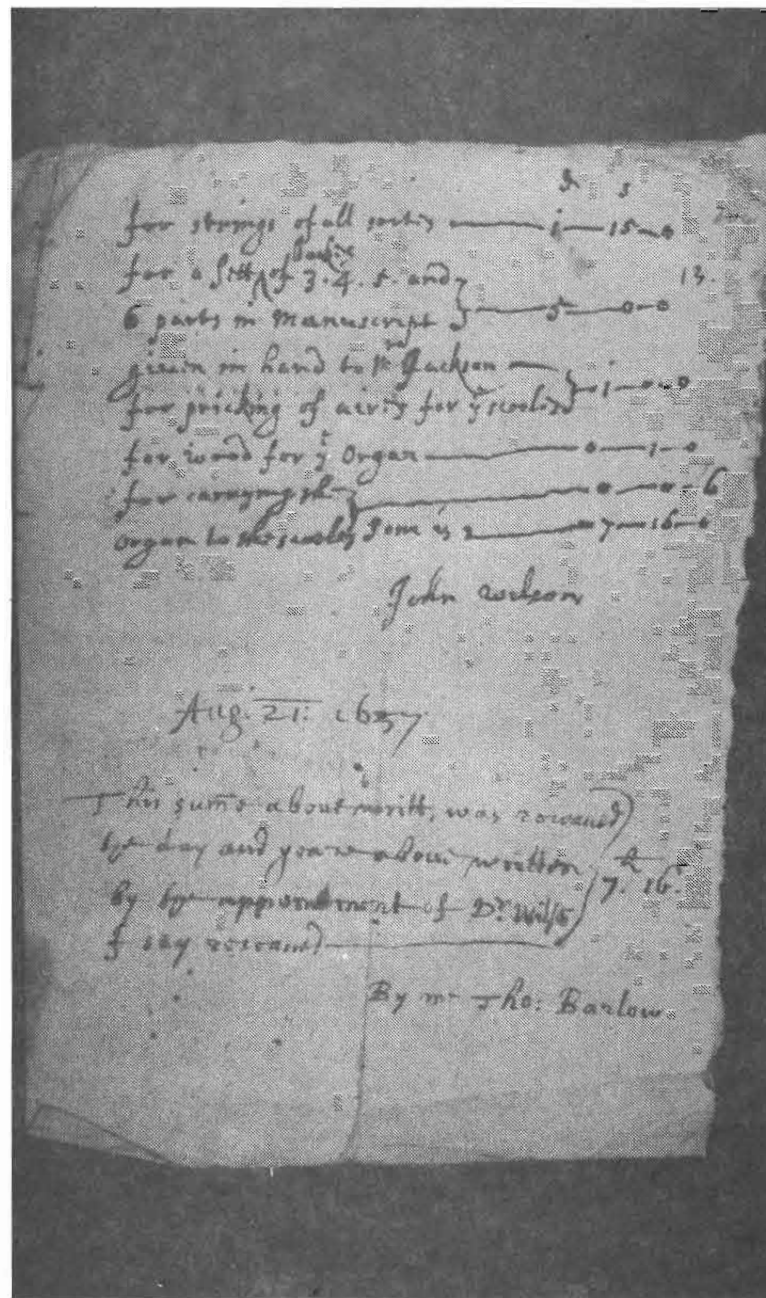 ll s
for strings of all sortes — 1 — 15 — 0
for a sett of bookes 3. 4. 5. and
13.
6 parts in Manuscript — 5 — 0 — 0
given in hand to Mr Jackson
for pricking of aires for ye scooles — 1 — 0 — 0
for wood for ye Organ — 0 — 1 — 0
for carrying the — 0 — 0 — 6
organ to the scooles some is — 7 — 16 — 0
John Wilson
Aug. 21: 1657
This summe above writt, was receaued
ye day and yeare above written
7. 16.
by ye appointment of Dr. Wilsō
I say receaued
By me Tho: Barlow